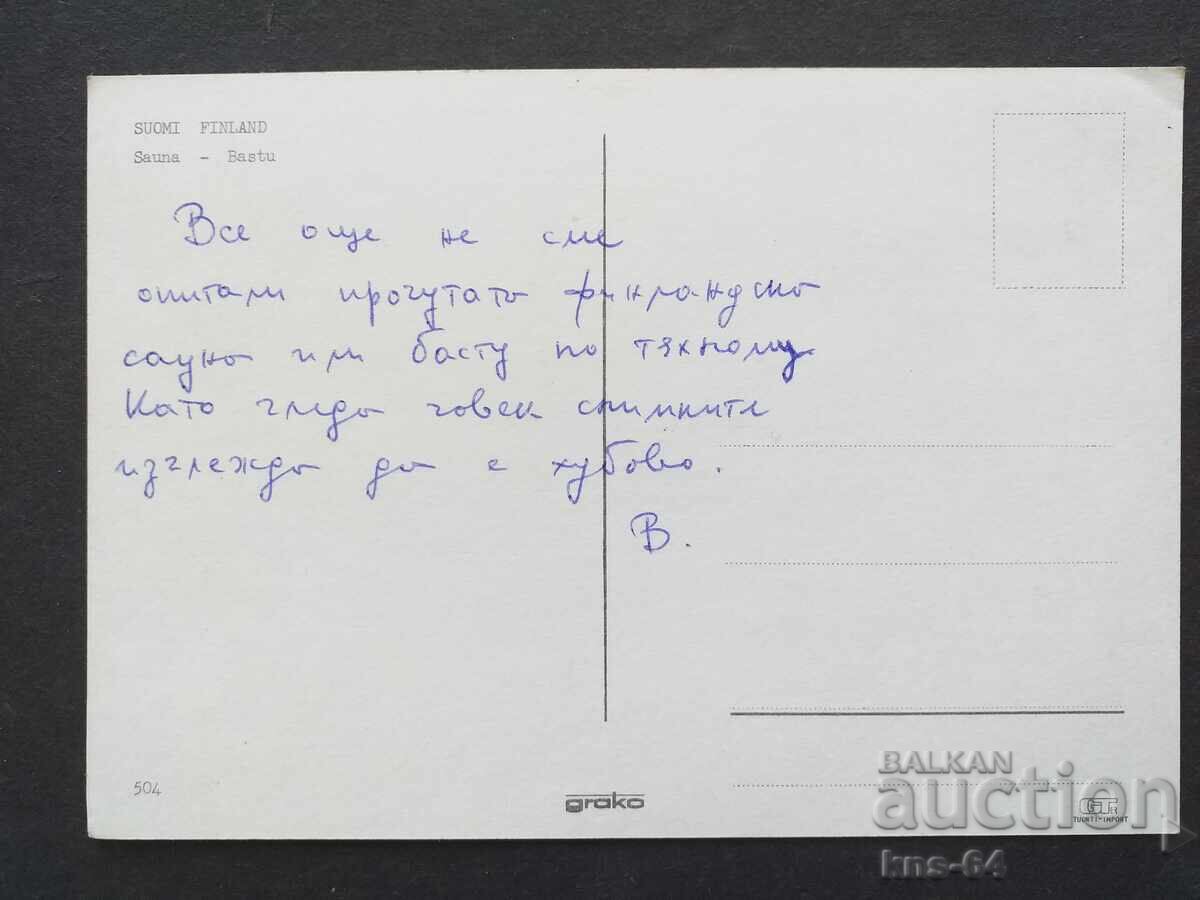 SUOMI FINLAND
Sauna - Bastu
Все още не сме
опитали прочутата финландска
сауна или басту по тяхному
Като гледа човек снимките
изглежда да е хубаво.
В.
504
grako
TUONTI-IMPORT
BALKAN
auction
kns-64